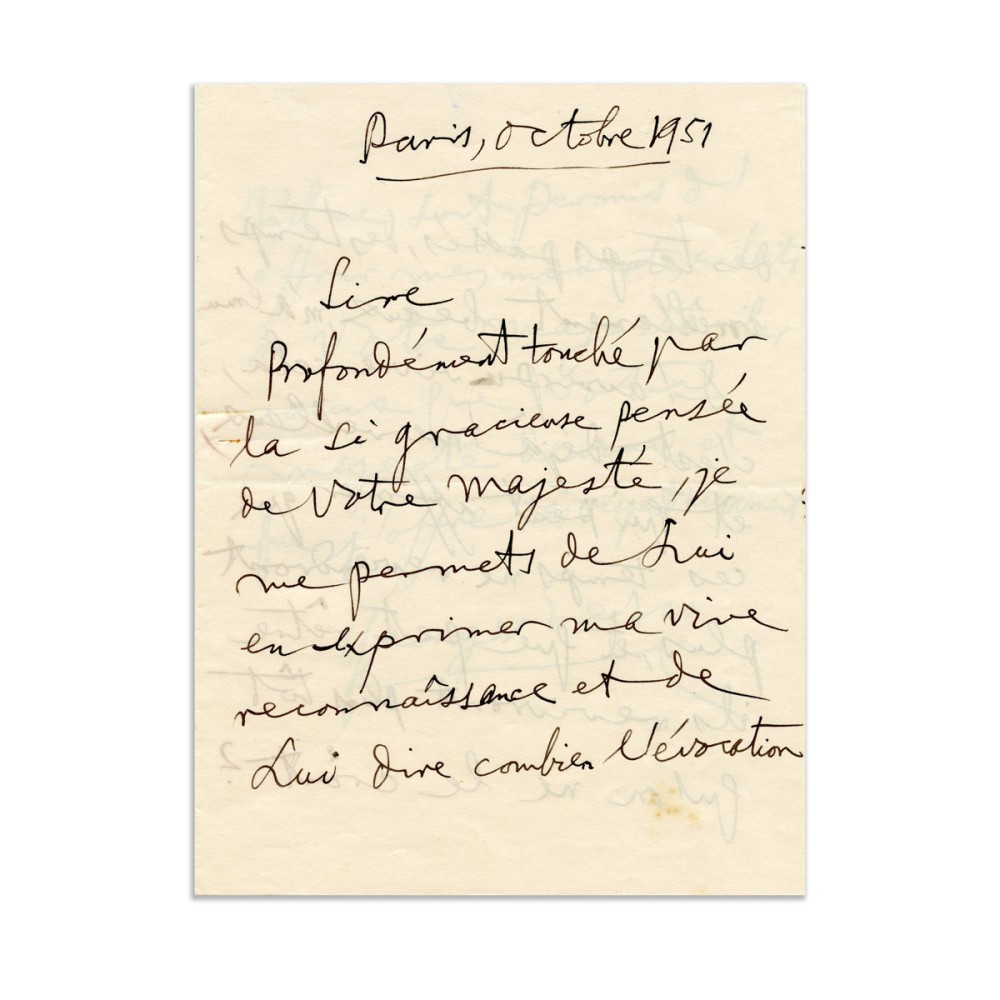 Paris, Octobre 1951
Sire
Profondément touché par
la si gracieuse pensée
de Votre Majesté, je
me permets de Lui
en exprimer ma vive
reconnaîssance et de
Lui dire combien l'évocation